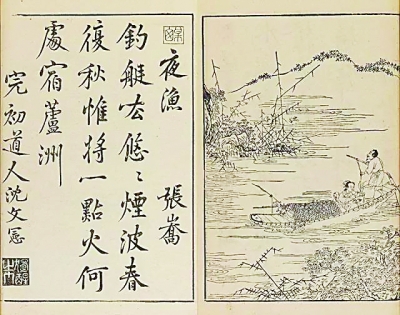 夜漁
張喬
釣艇去悠悠煙波春
復秋惟將一點火何
處宿蘆洲
完初道人沈文憲